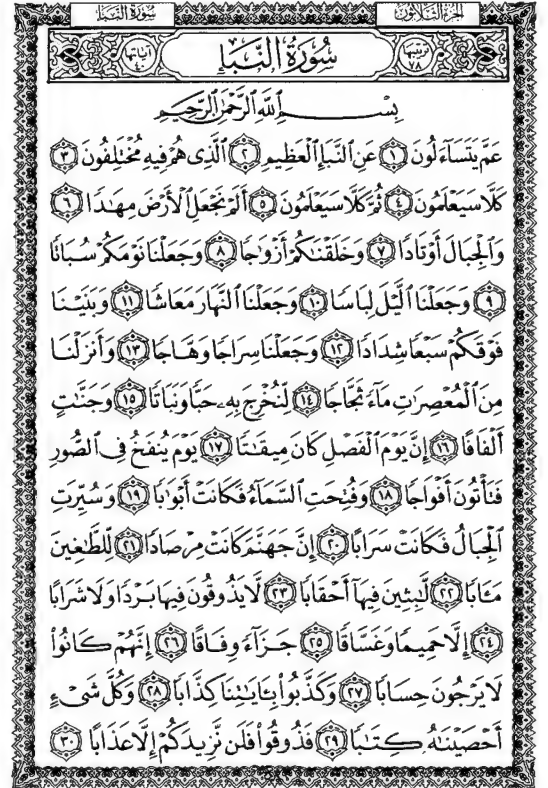 الجزء الثلاثون سورة النبأ
ترتيبها ٧٨ سُورَةُ النَّبَإِ آياتها ٤٠
بِسْمِ ٱللَّهِ ٱلرَّحْمَٰنِ ٱلرَّحِيمِ
عَمَّ يَتَسَآءَلُونَ ١ عَنِ ٱلنَّبَإِ ٱلْعَظِيمِ ٢ ٱلَّذِى هُمْ فِيهِ مُخْتَلِفُونَ ٣
كَلَّا سَيَعْلَمُونَ ٤ ثُمَّ كَلَّا سَيَعْلَمُونَ ٥ أَلَمْ نَجْعَلِ ٱلْأَرْضَ مِهَٰدًا ٦
وَٱلْجِبَالَ أَوْتَادًا ٧ وَخَلَقْنَٰكُمْ أَزْوَٰجًا ٨ وَجَعَلْنَا نَوْمَكُمْ سُبَاتًا
٩ وَجَعَلْنَا ٱلَّيْلَ لِبَاسًا ١٠ وَجَعَلْنَا ٱلنَّهَارَ مَعَاشًا ١١ وَبَنَيْنَا
فَوْقَكُمْ سَبْعًا شِدَادًا ١٢ وَجَعَلْنَا سِرَاجًا وَهَّاجًا ١٣ وَأَنزَلْنَا
مِنَ ٱلْمُعْصِرَٰتِ مَآءً ثَجَّاجًا ١٤ لِّنُخْرِجَ بِهِۦ حَبًّا وَنَبَاتًا ١٥ وَجَنَّٰتٍ
أَلْفَافًا ١٦ إِنَّ يَوْمَ ٱلْفَصْلِ كَانَ مِيقَٰتًا ١٧ يَوْمَ يُنفَخُ فِى ٱلصُّورِ
فَتَأْتُونَ أَفْوَاجًا ١٨ وَفُتِحَتِ ٱلسَّمَآءُ فَكَانَتْ أَبْوَٰبًا ١٩ وَسُيِّرَتِ
ٱلْجِبَالُ فَكَانَتْ سَرَابًا ٢٠ إِنَّ جَهَنَّمَ كَانَتْ مِرْصَادًا ٢١ لِّلطَّٰغِينَ
مَـَٔابًا ٢٢ لَّٰبِثِينَ فِيهَآ أَحْقَابًا ٢٣ لَّا يَذُوقُونَ فِيهَا بَرْدًا وَلَا شَرَابًا
٢٤ إِلَّا حَمِيمًا وَغَسَّاقًا ٢٥ جَزَآءً وِفَاقًا ٢٦ إِنَّهُمْ كَانُوا۟
لَا يَرْجُونَ حِسَابًا ٢٧ وَكَذَّبُوا۟ بِـَٔايَٰتِنَا كِذَّابًا ٢٨ وَكُلَّ شَىْءٍ
أَحْصَيْنَٰهُ كِتَٰبًا ٢٩ فَذُوقُوا۟ فَلَن نَّزِيدَكُمْ إِلَّا عَذَابًا ٣٠